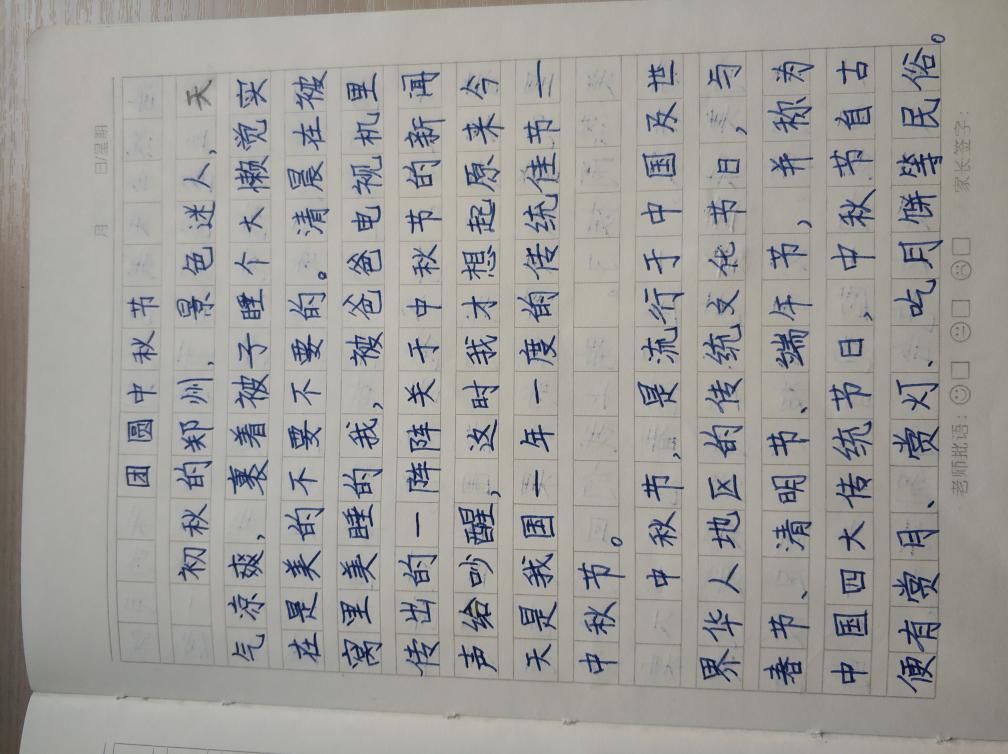 月 日/星期
团圆中秋节
初秋的郑州，景色迷人，天
气凉爽，裹着被子睡个大懒觉实
在是美的不要不要的。清晨在被
窝里美睡的我，被爸爸电视机里
传出的一阵阵关于中秋节的新闻
声给吵醒，这时我才想起原来今
天是我国一年一度的传统佳节—
中秋节。
中秋节，是流行于中国及世
界华人地区的传统文化节日，与
春节、清明节、端午节，并称为
中国四大传统节日，中秋节自古
便有赏月、赏灯、吃月餅等民俗。
老师批语： 家长签字：